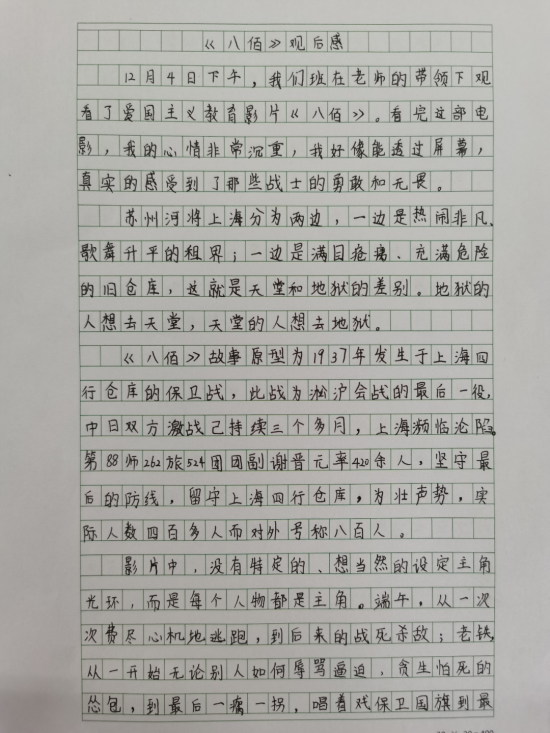 《八佰》观后感
12月4日下午，我们班在老师的带领下观
看了爱国主义教育影片《八佰》。看完这部电
影，我的心情非常沉重，我好像能透过屏幕，
真实的感受到了那些战士的勇敢和无畏。
苏州河将上海分为两边，一边是热闹非凡、
歌舞升平的租界；一边是满目疮痍、充满危险
的旧仓库，这就是天堂和地狱的差别。地狱的
人想去天堂，天堂的人想去地狱。
《八佰》故事原型为1937年发生于上海四
行仓库的保卫战，此战为淞沪会战的最后一役，
中日双方激战已持续三个多月，上海濒临沦陷。
第88师262旅524团团副谢晋元率420余人，坚守最
后的防线，留守上海四行仓库，为壮声势，实
际人数四百多人而对外号称八百人。
影片中，没有特定的、想当然的设定主角
光环，而是每个人物都是主角。端午，从一次
次费尽心机地逃跑，到后来的战死杀敌；老铁，
从一开始无论别人如何辱骂逼迫，贪生怕死的
怂包，到最后一瘸一拐，唱着戏保卫国旗到最